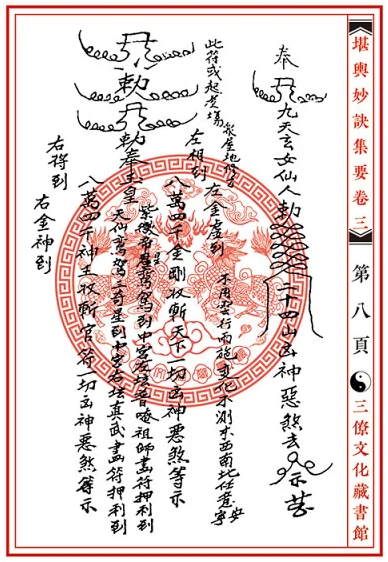 堪輿妙訣集要卷三
第八頁
三僚文化藏書館
奉
九天玄女仙人勅
二十四山凶神惡煞去
此符或起造塲
不用雲行雨施變化不測東西南北任意安寧
左相到 左金虎到
八萬四千金剛收斬天下一切凶神惡煞等示
勅
勅奉玉皇
紫微帝星鸞駕到中宮
普唵祖師畫符押利到
天仙鸞駕三奇星到中宮
真武畫符押利到
右將到
八萬四千神王收斬官符一切凶神惡煞等示
右金神到